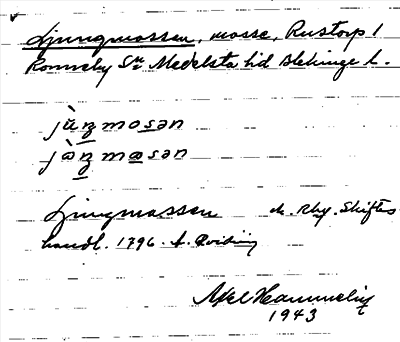 Ljungmossen, mosse, Rustorp 1
Ronneby Sn Medelsta hd Blekinge l.
jùŋmosən
jòŋmɷsən
Ljungmossen Skiftes
handl. 1796.
Axel Hammelin
1943